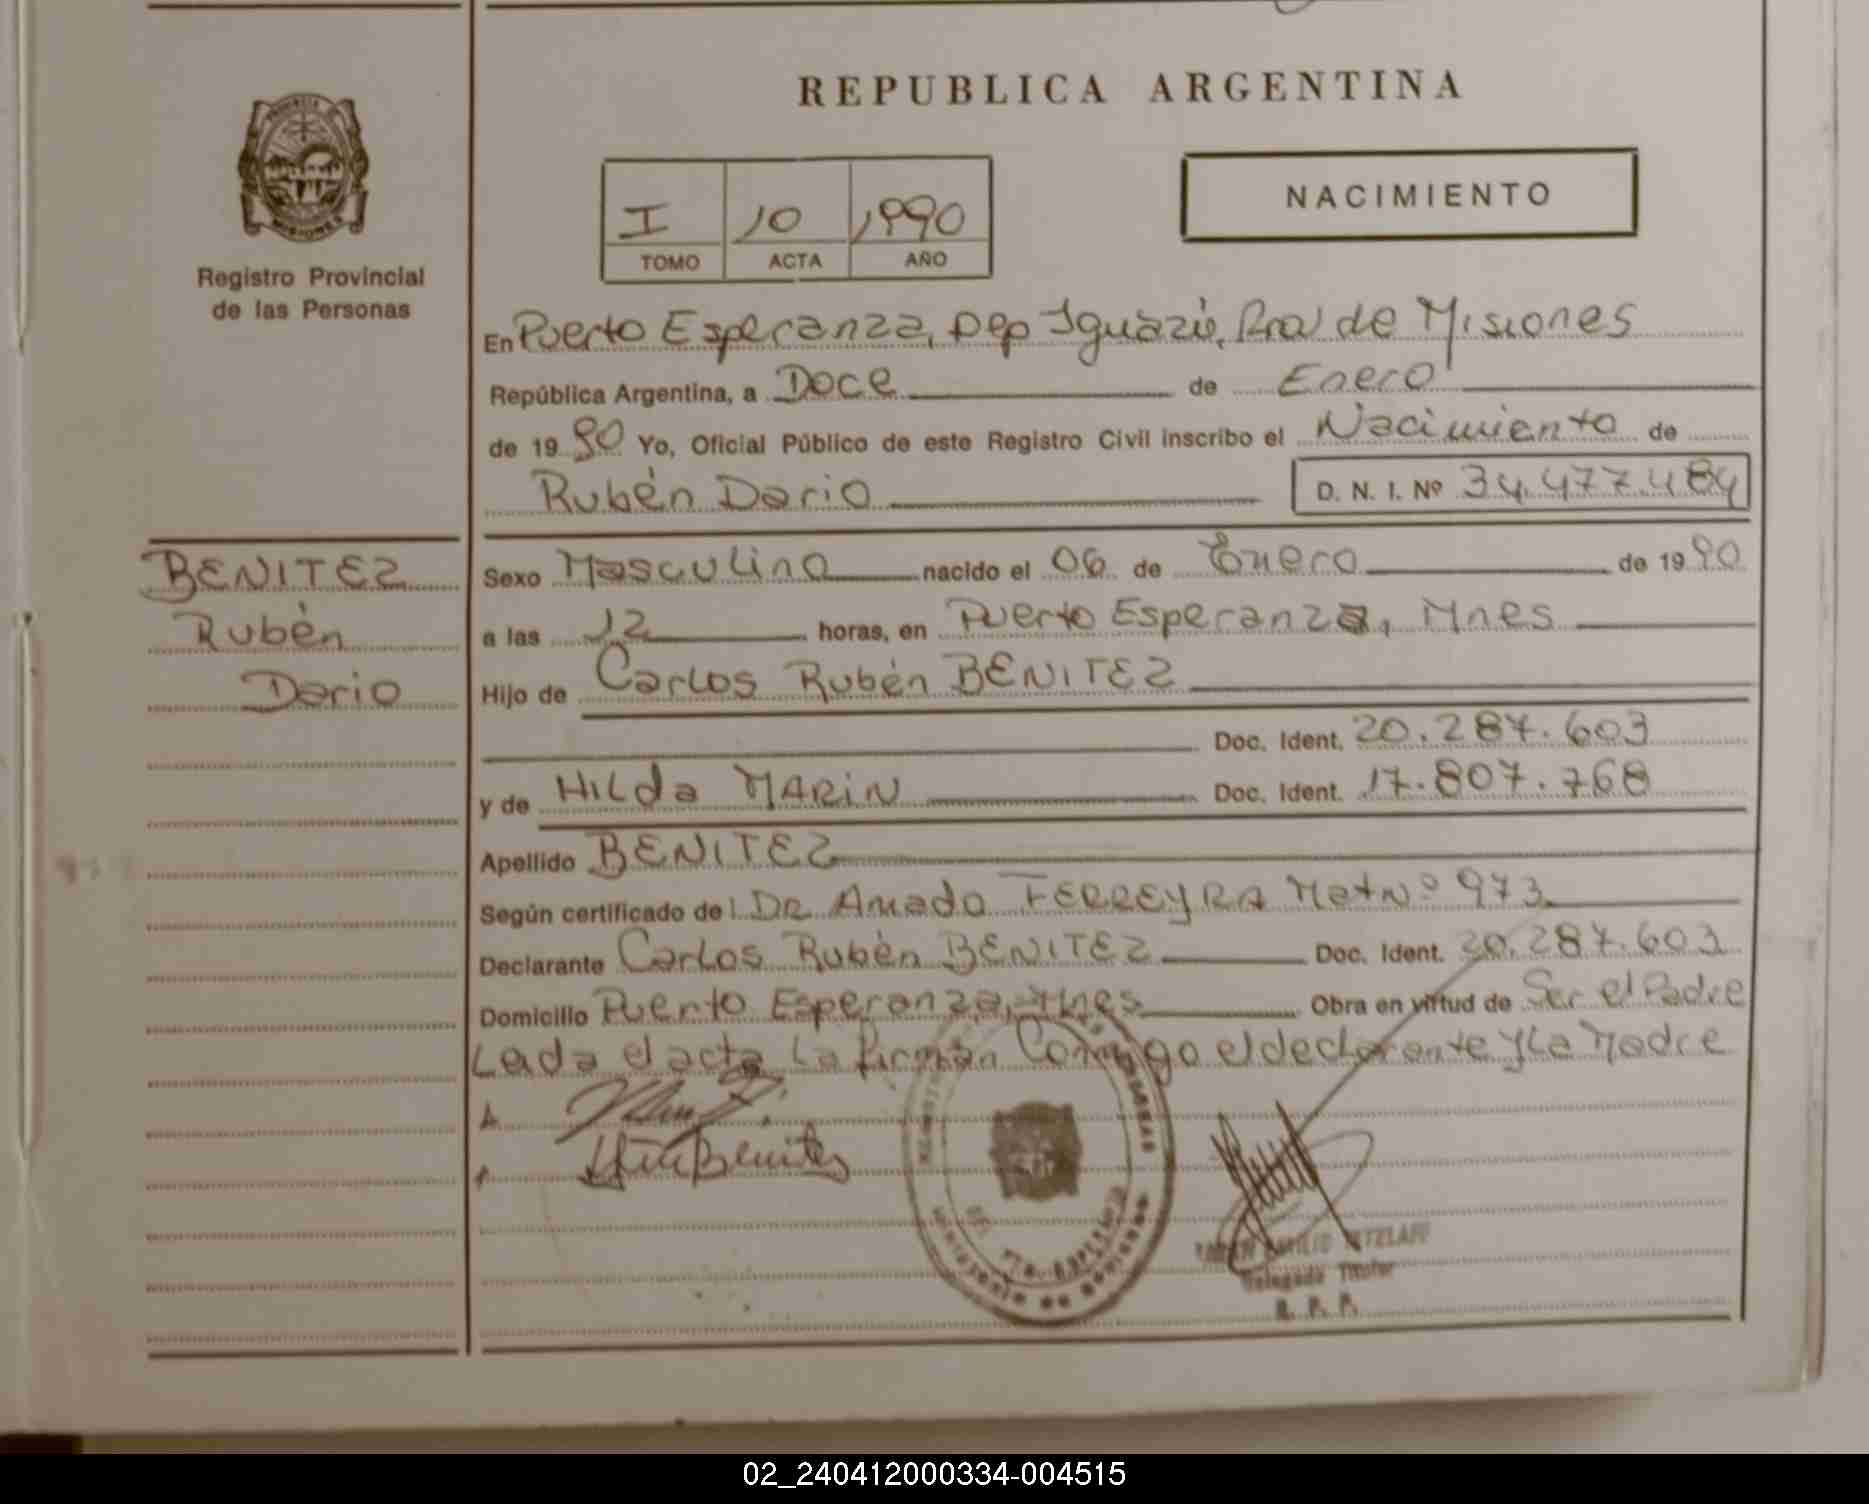 REPUBLICA ARGENTINA
PROVINCIA
MISIONES
Registro Provincial
de las Personas
I 10 1990
TOMO ACTA AÑO
NACIMIENTO
En Puerto Esperanza, Dep Iguazú, Pcia de Misiones
República Argentina, a Doce de Enero
de 19 90 Yo, Oficial Público de este Registro Civil inscribo el Nacimiento de
Rubén Dario D. N. I. Nº 34.477.484
BENITEZ
Rubén
Dario
Sexo Masculino nacido el 06 de Enero de 19 90
a las 12 horas, en Puerto Esperanza, Mnes
Hijo de Carlos Rubén BENITEZ
Doc. Ident. 20.287.603
y de HILda MARiN Doc. Ident. 17.807.768
Apellido BENITEZ
Según certificado de DR Amado FERREYRA Mat Nº 973
Declarante Carlos Rubén BENITEZ Doc. Ident. 20.287.603
Domicilio Puerto Esperanza, Mnes Obra en virtud de Ser el Padre
Leida el acta La firman Conmigo el declarante y La Madre
Benitez
Delegado Titular
R. P. P.
02_240412000334-004515